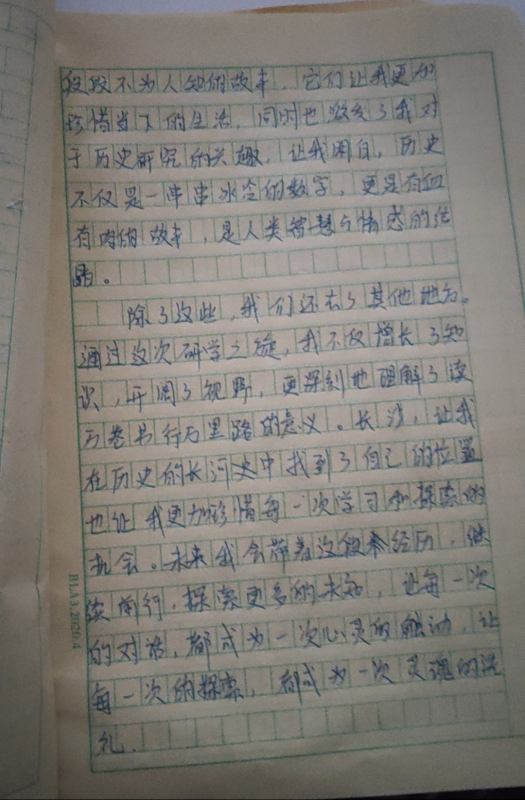 段段不为人知的故事，它们让我更加
珍惜当下的生活，同时也激发了我对
于历史研究的兴趣，让我明白，历史
不仅是一串串冰冷的数字，更是有血
有肉的故事，是人类智慧与情感的结
晶。
除了这些，我们还去了其他地方。
通过这次研学之旅，我不仅增长了知
识，开阔了视野，更深刻地理解了读
万卷书行万里路的意义。长沙，让我
在历史的长河史中找到了自己的位置
也让我更加珍惜每一次学习和探索的
机会。未来我会带着这段经历，继
续前行，探索更多的未知，让每一次
的对话，都成为一次心灵的触动，让
每一次的探索，都成为一次灵魂的洗
礼.
BLA3.2020.4